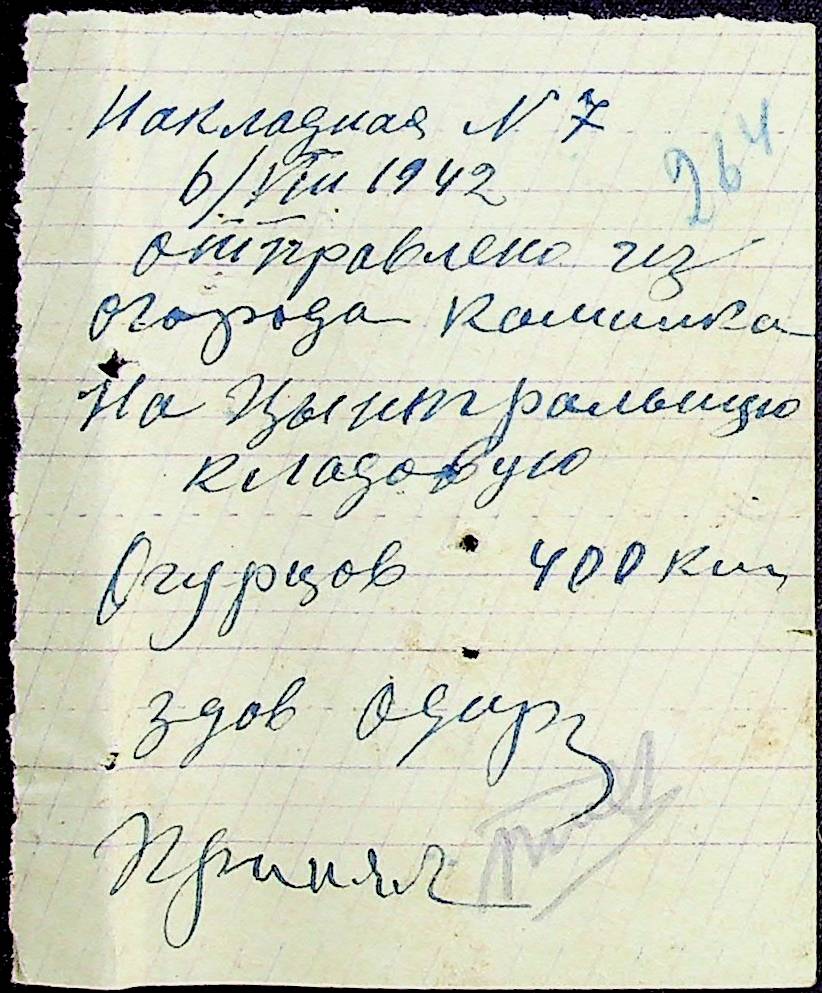 Накладная N 7
264
6/VIII 1942
отправлено из
огорода
На Цынтральную
кладовую
Огурцов 400 кил
здов
Принял